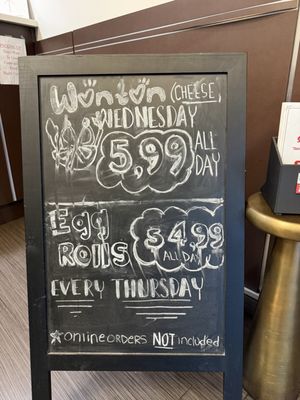 Wonton (CHEESE)
WEDNESDAY
5,99 ALL DAY
Egg Rolls
$4,99
ALL DAY
EVERY THURSDAY
★online orders NOT included